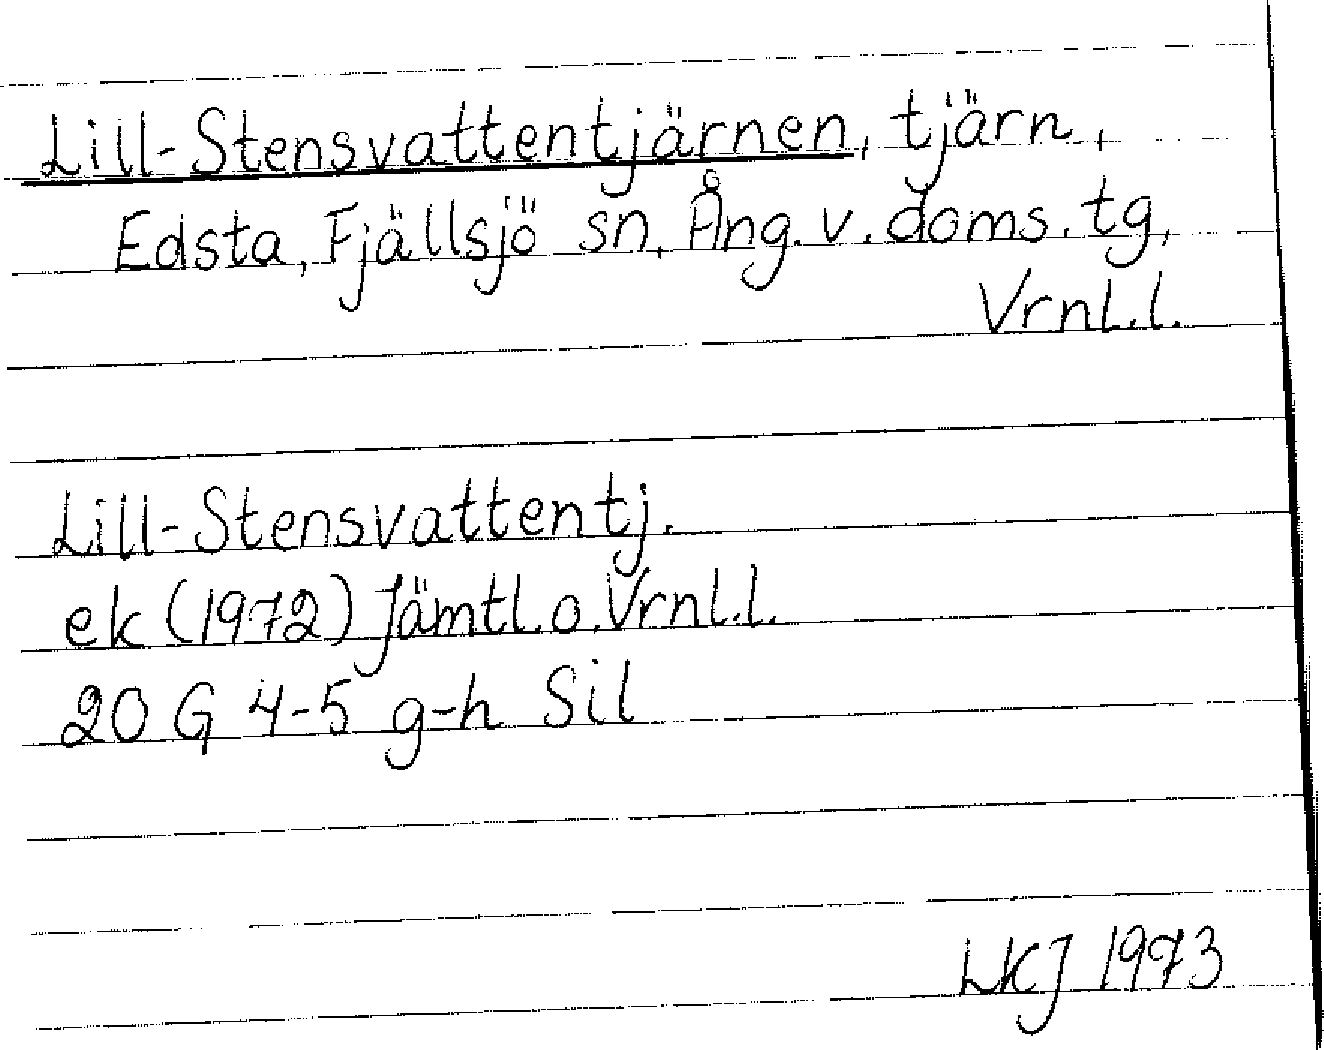 Lill-Stensvattentjärnen, tjärn,
Edsta, Fjällsjö sn, Ång. v. doms. tg,
Vrnl.l.
Lill-Stensvattentj.
ek (1972) Jämtl. o. Vrnl.l.
20 G 4-5 g-h Sil
LKJ 1973